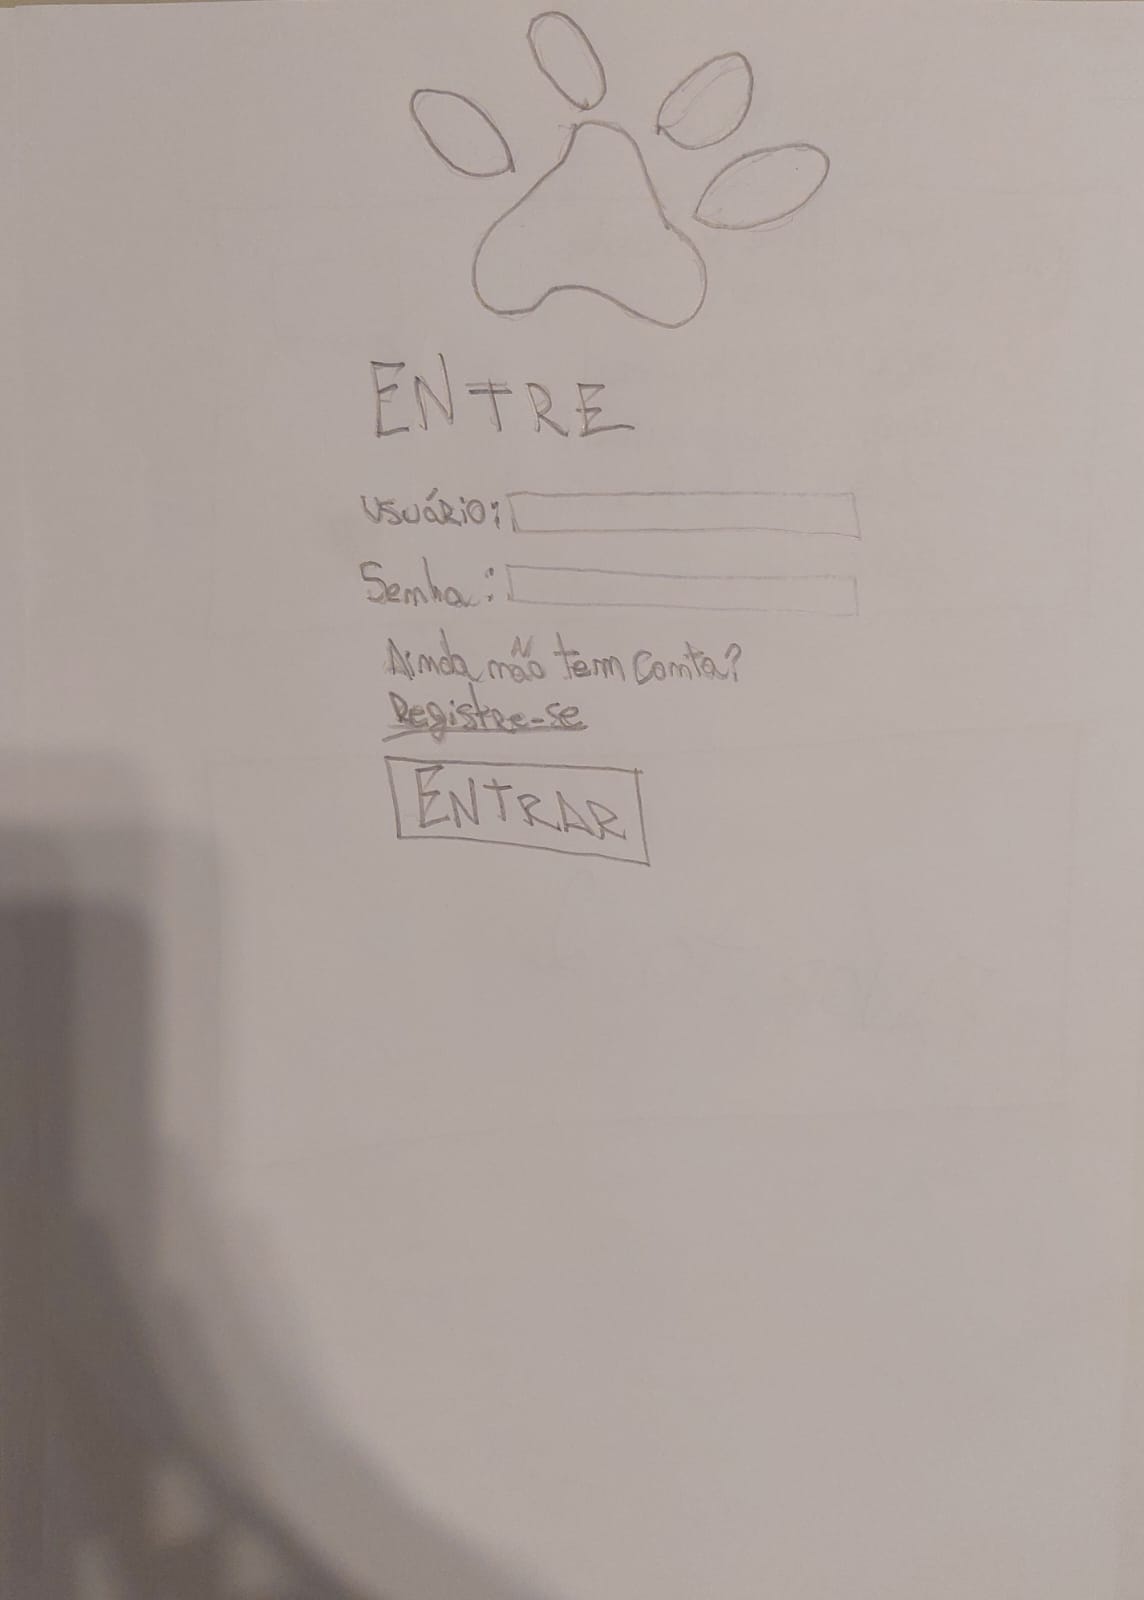 ENTRE
Usuário:
Senha:
Ainda não tem conta?
Registre-se
ENTRAR